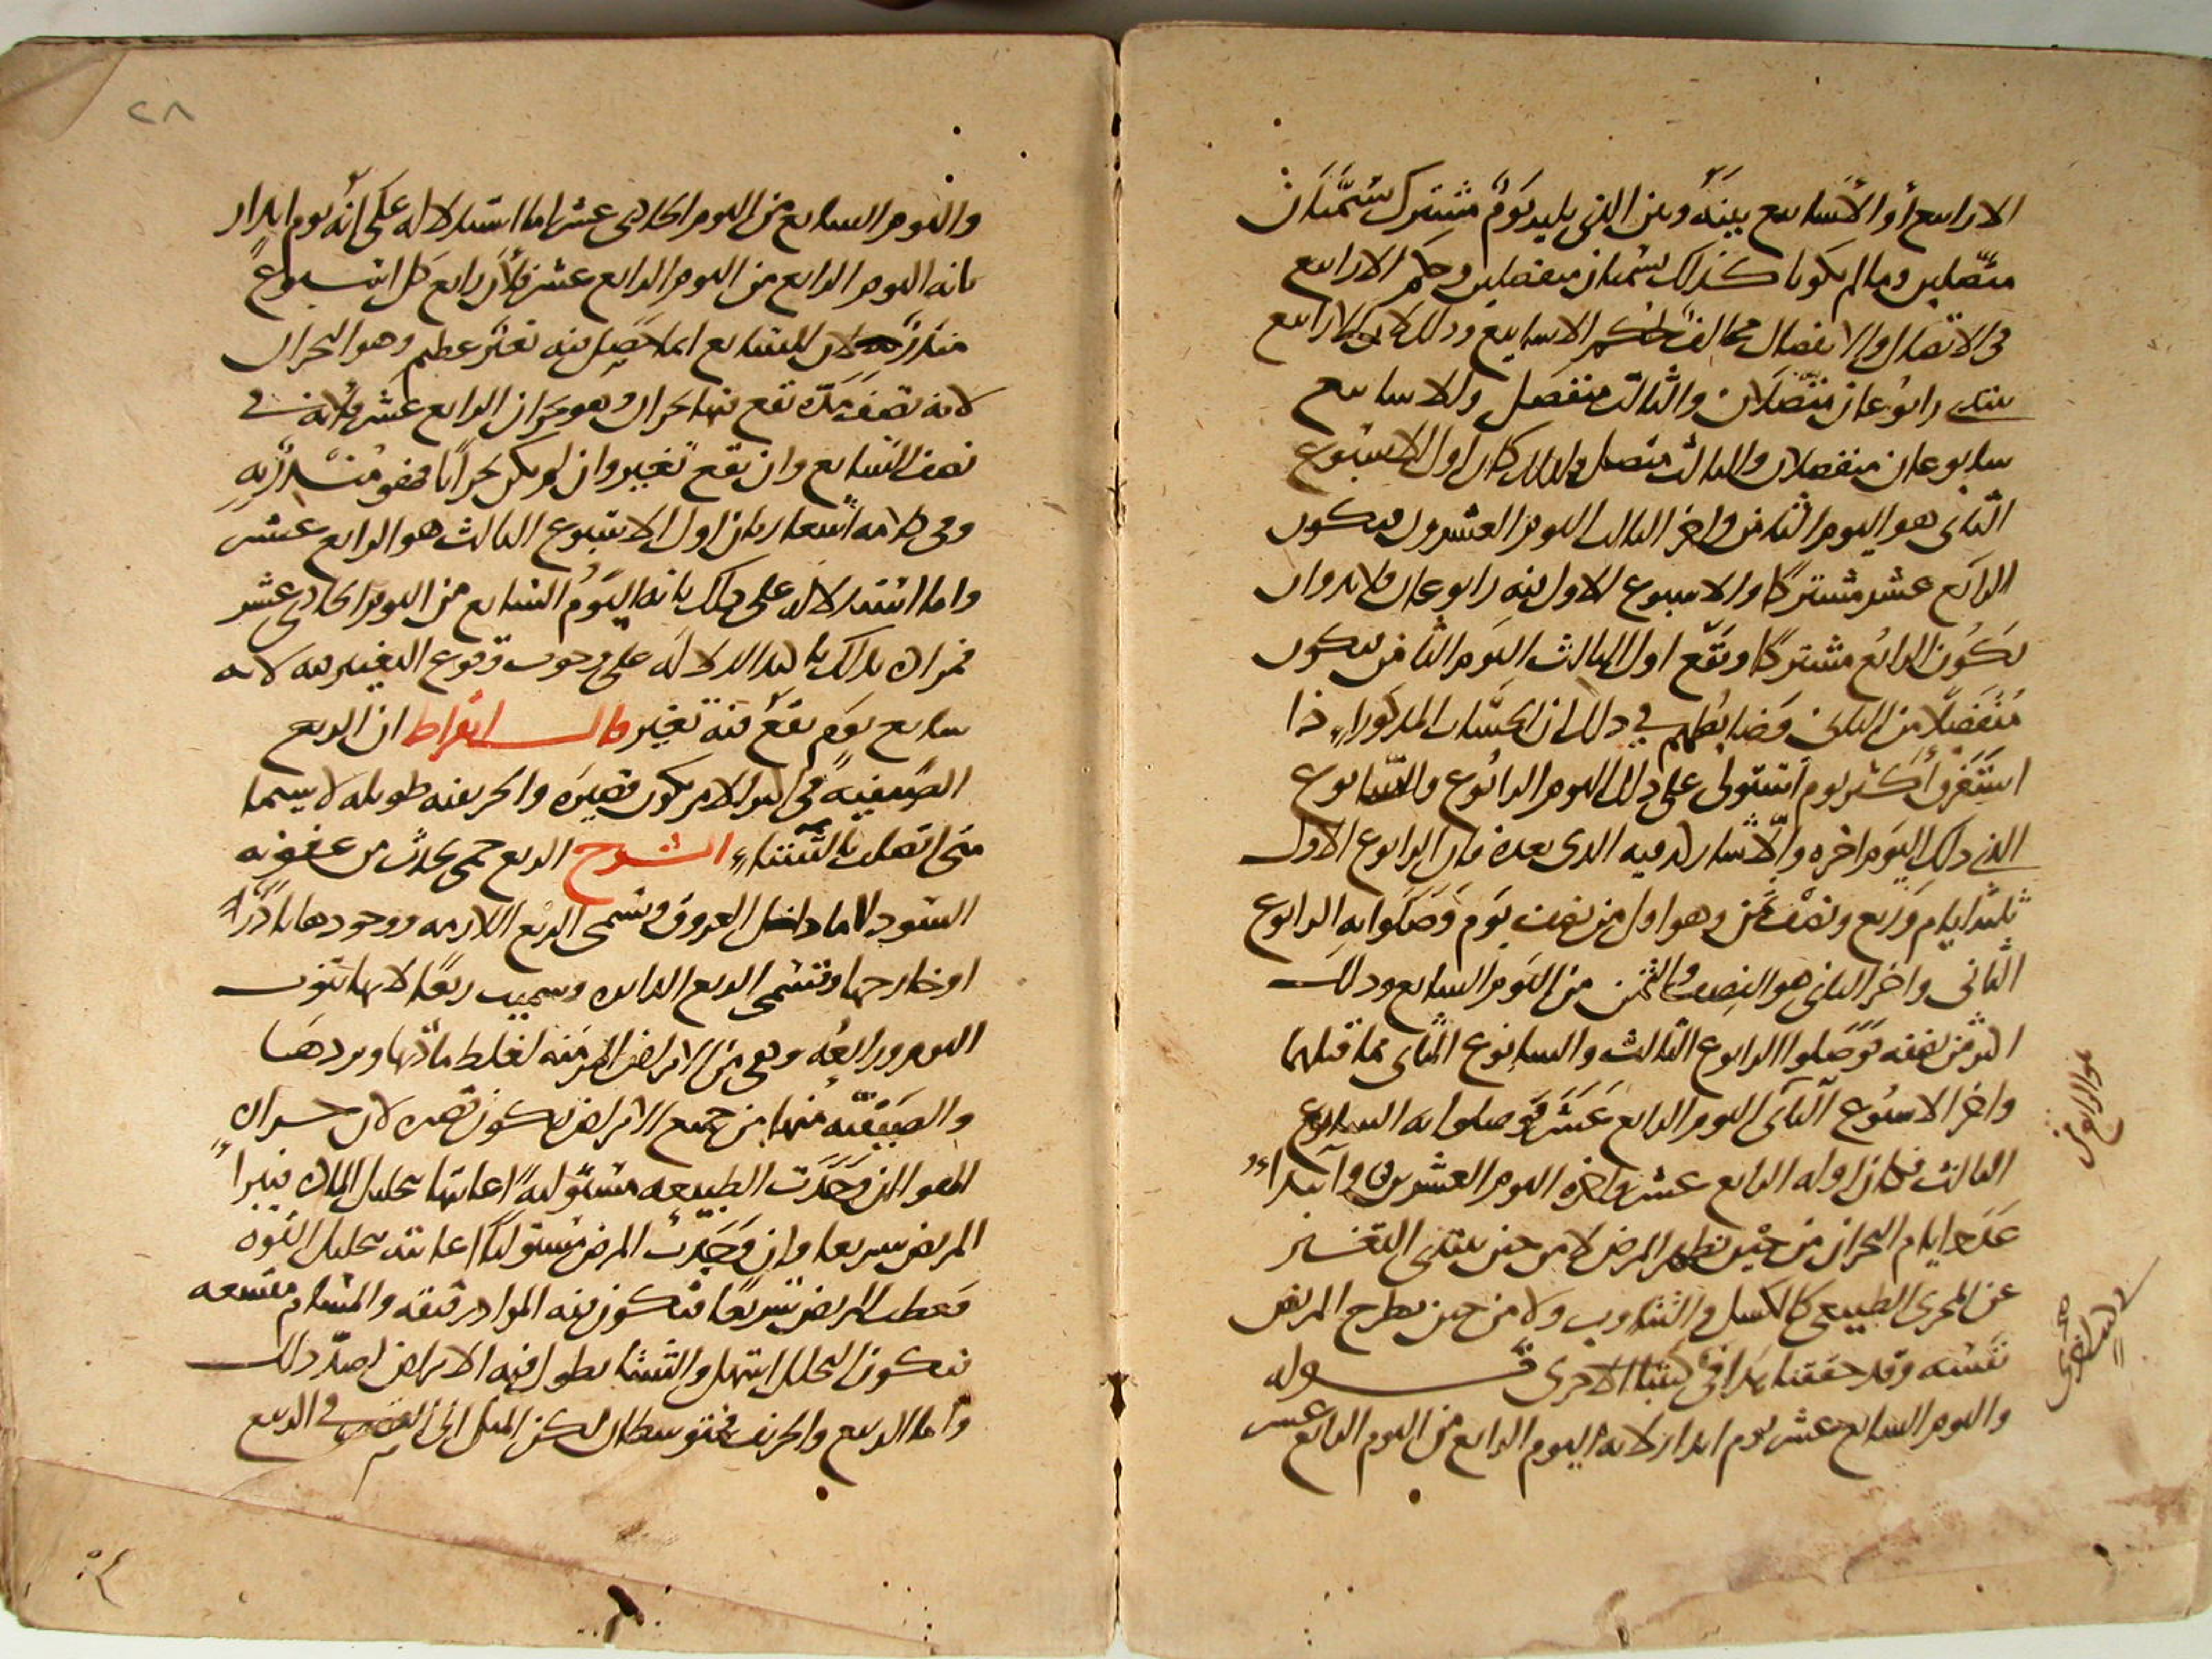 الارابيع أو الأسابيع بينه وبين الذي يليه يوم مشترك سميا
متصلين وما لم يكونا كذلك يسميان منفصلين وحكم الارابيع
في الاتصال والانفصال مخالف لحكم الاسابيع وذلك لان الارابيع
يبتدي رابوعان متصلان والثالث منفصل والاسابيع
سابوعان منفصلان والثالث متصل ولذلك كان اول الاسبوع
الثاني هو اليوم الثامن واخر الثالث اليوم العشرون فيكون
الرابع عشر مشتركا والاسبوع الاول فيه رابوعان فلابد وان
يكون الرابع مشتركا ويقع اول الثالث اليوم الثامن فيكون
منفصلا من الثاني وضابطهم في ذلك ان الحساب المذكور اذا
استغرق أكثر يوم استولى على ذلك اليوم الرابوع والسابوع
الذي ذلك اليوم اخره والا شاركه فيه الذي بعده فان الرابوع الاول
ثلثة ايام وربع ونصف ثمن وهو اول من نصف يوم فوصلوا به الرابوع
الثاني واخر الثاني هو النصف والثمن من اليوم السابع وذلك
اكثر من نصفه فوصلوا الرابوع الثالث والسابوع الثاني بما قبلهما
واخر الاسبوع الثاني اليوم الرابع عشر فوصلوا به السابوع
الثالث فكان اوله الرابع عشر واخره اليوم العشرين وابتداء
عدد ايام البحران من حين يظهر المرض لا من حين يبتدي التغير
عن المجرى الطبيعي كالكسل والتثاوب ولا من حين يطرح المريض
نفسه وقد حققنا هذا في كتبنا الاخرى قوله
واليوم السابع عشر يوم انذار لانه اليوم الرابع من اليوم الرابع عشر
٢٨
واليوم السابع من اليوم الحادي عشر اما استدلاله على انه يوم انذار
بانه اليوم الرابع من اليوم الرابع عشر فلان رابع كل اسبوع
منذر به لان السابع انما حصل فيه تغير عظيم وهو البحران
لانه نصف مدة تقع فيها بحران وهو بحران الرابع عشر فلانه في
نصف السابع وان يقع تغيير وان لم يكن بحرانا فهو منذر به
وفي كلامه اشعار بان اول الاسبوع الثالث هو الرابع عشر
واما استدلاله على ذلك بانه اليوم السابع من اليوم الحادي عشر
فمراده بذلك تاكيد الدلالة على وجوب وقوع التغيير فيه لانه
سابع يوم يقع فيه تغيير قال ابقراط ان الربع
الصيفية في اكثر الامر يكون قصيرة والخريفية طويلة لا سيما
متى اتصلت بالشتاء الشرح الربع حمى يحدث من عفونة
السوداء اما داخل العروق وتسمى الربع اللازمة ووجودها نادر
او خارجها وتسمى الربع الدايرة وسميت ربعا لانها تنوب
اليوم ورابعه وهي من الامراض المزمنة لغلظ مادتها وبردها
والصيفية منها من جميع الامراض يكون قصيرة لان حرارة
الهواء ان وجدت الطبيعة مستولية اعانتها بتحليل المادة فيبرا
المريض سريعا وان وجدت المرض مستوليا اعانته بتحليل القوة
فيعطب المريض سريعا فتكون فيه المواد رقيقة والمسام متسعة
فيكون التحلل اسهل والشتا يطول فيه الامراض لضد ذلك
وأما الربيع والخريف فمتوسطان لكن الميل الى القصر في الربيع